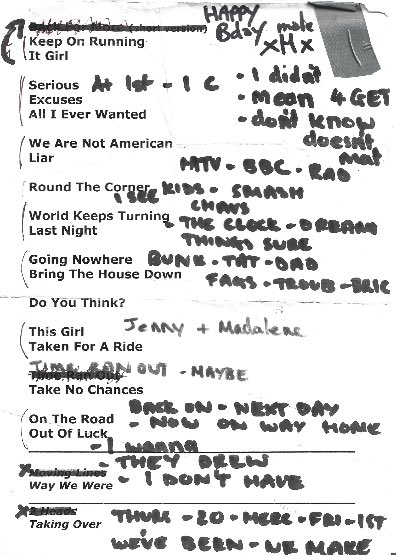 (short version)
HAPPY
Bday mate
xHx
Keep On Running
It Girl
Serious At 1st - I C - I didn't
Excuses - mean 4GET
All I Ever Wanted - don't know
doesn't
mat
We Are Not American
Liar MTV - BBC - RAD
Round The Corner KIDS - SMASH
I SEE CHAVS
World Keeps Turning - THE CLOCK - DREAM
Last Night THINGS SURE
Going Nowhere BUNK - TAT - DAD
Bring The House Down FAGS - TROUB - BRIC
Do You Think?
This Girl Jenny + Madalene
Taken For A Ride
TIME RAN OUT - MAYBE
Time Ran Out
Take No Chances
On The Road BACK ON - NEXT DAY
Out Of Luck - NOW ON WAY HOME
- I wanna
Moving Lines - THEY DREW
Way We Were - I DON'T HAVE
2 Heads
Taking Over THURS - 20 - MERC - FRI - 1ST
WE'VE BEEN - WE MAKE